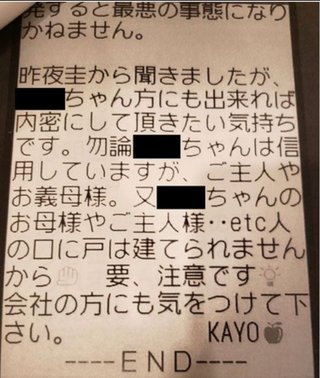 発すると最悪の事態になり
かねません。
昨夜圭から聞きましたが、
ちゃん方にも出来れば
内密にして頂きたい気持ち
です。勿論 ちゃんは信
用していますが、ご主人や
お義母様。又 ちゃんの
お母様やご主人様・・etc人
の口に戸は建てられません
から✋ 要、注意です💡
会社の方にも気をつけて下
さい。 KAYO🍎
----END----